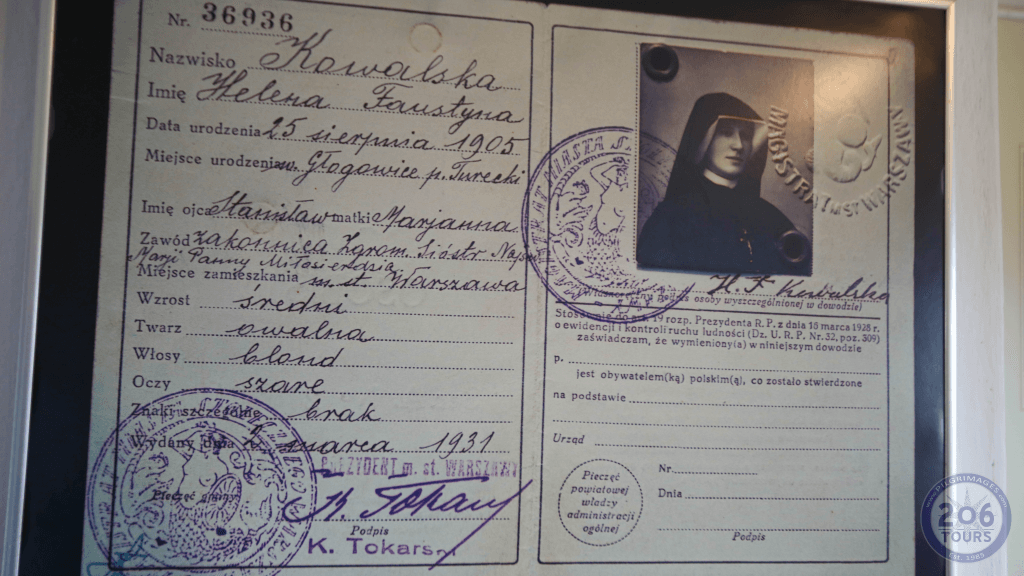 Nr. 36936
Nazwisko Kowalska
Imię Helena Faustyna
Data urodzenia 25 sierpnia 1905
Miejsce urodzenia w. Głogowice p. Turecki
Imię ojca Stanisław matki Marjanna
Zawód Zakonnica Zgrom Sióstr Najś
Marji Panny Miłosierdzia
Miejsce zamieszkania m. st. Warszawa
Wzrost średni
Twarz owalna
Włosy blond
Oczy szare
Znaki szczególne brak
Wydany dnia marca 1931
PREZYDENT m. st. WARSZAWY
Pieczęć gminy
Podpis
K. Tokars
MAGISTRAT m. st. WARSZAWY
H. F. Kowalska
podpis osoby wyszczególnionej w dowodzie)
Stosownie do art. 19 rozp. Prezydenta R. P. z dnia 16 marca 1928 r.
o ewidencji i kontroli ruchu ludności (Dz. U. R. P. Nr. 32, poz. 309)
zaświadczam, że wymieniony(a) w niniejszym dowodzie
p.
jest obywatelem(ką) polskim(ą), co zostało stwierdzone
na podstawie
Urząd
Pieczęć
powiatowej
władzy
administracji
ogólnej
Nr.
Dnia
Podpis
www.PILGRIMAGES.com
206
TOURS
EST. 1985